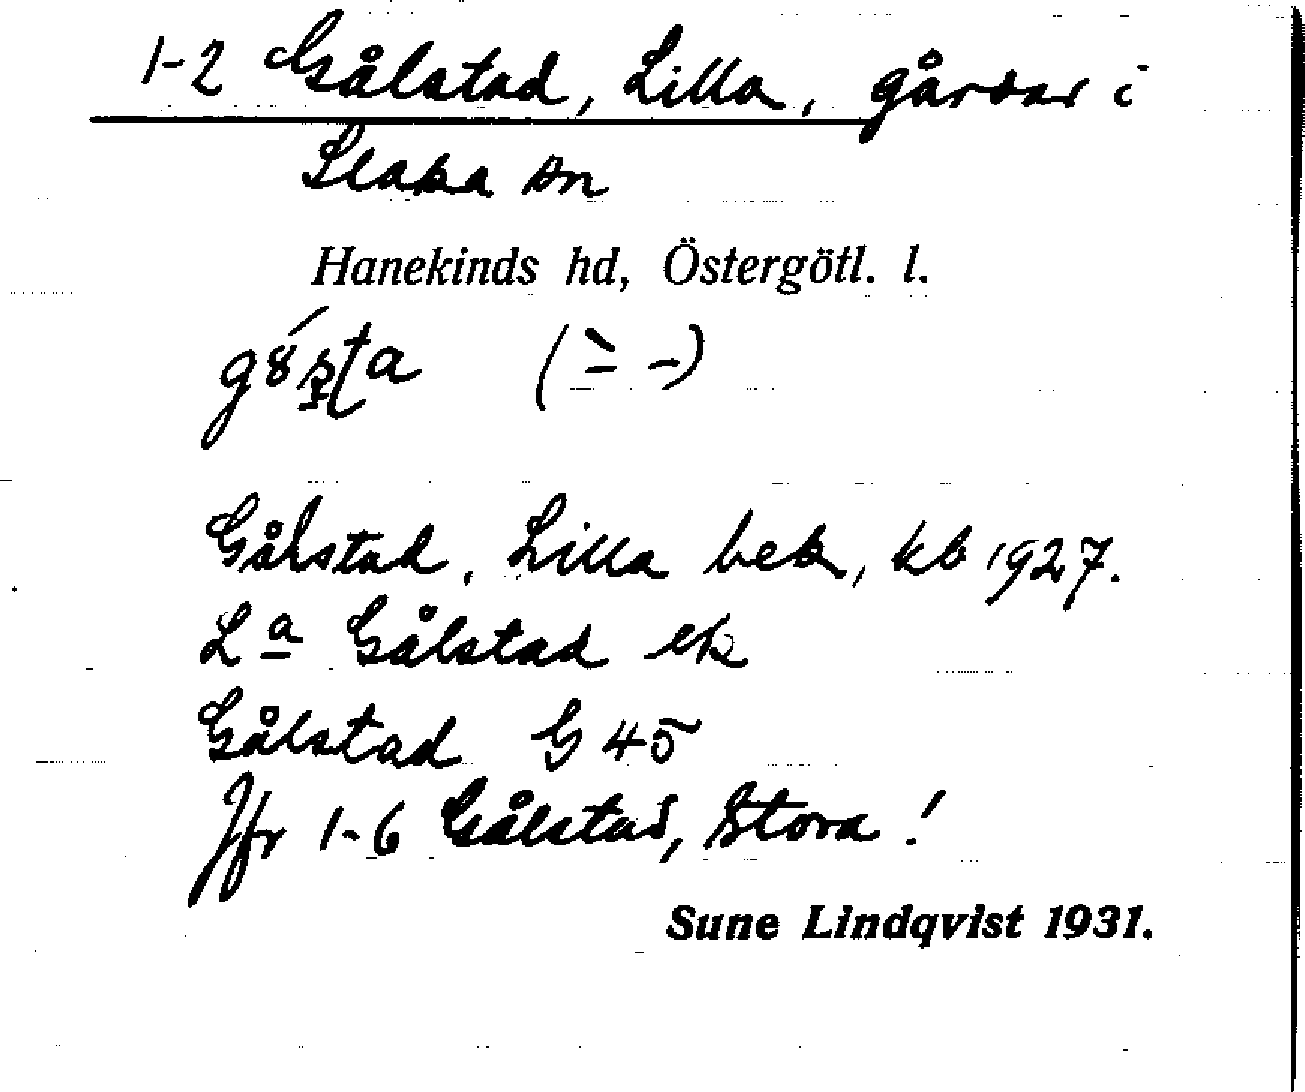 1-2 Gålstad, Lilla, gårdar i
Slaka sn
Hanekinds hd, Östergötl. l.
Gålstad, Lilla bek, kb 1927.
L<sup>a</sup> Gålstad ek
Gålstad G 45
Jfr 1-6 Gålstad, Stora!
Sune Lindqvist 1931.